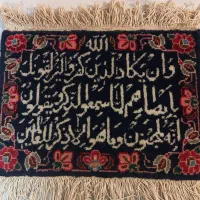 الله
وان یکاد الذین کفروا لیزلقونک
بابصارهم لما سمعوا الذکر و یقولون
انه لمجنون و ما هو الا ذکر للعالمین